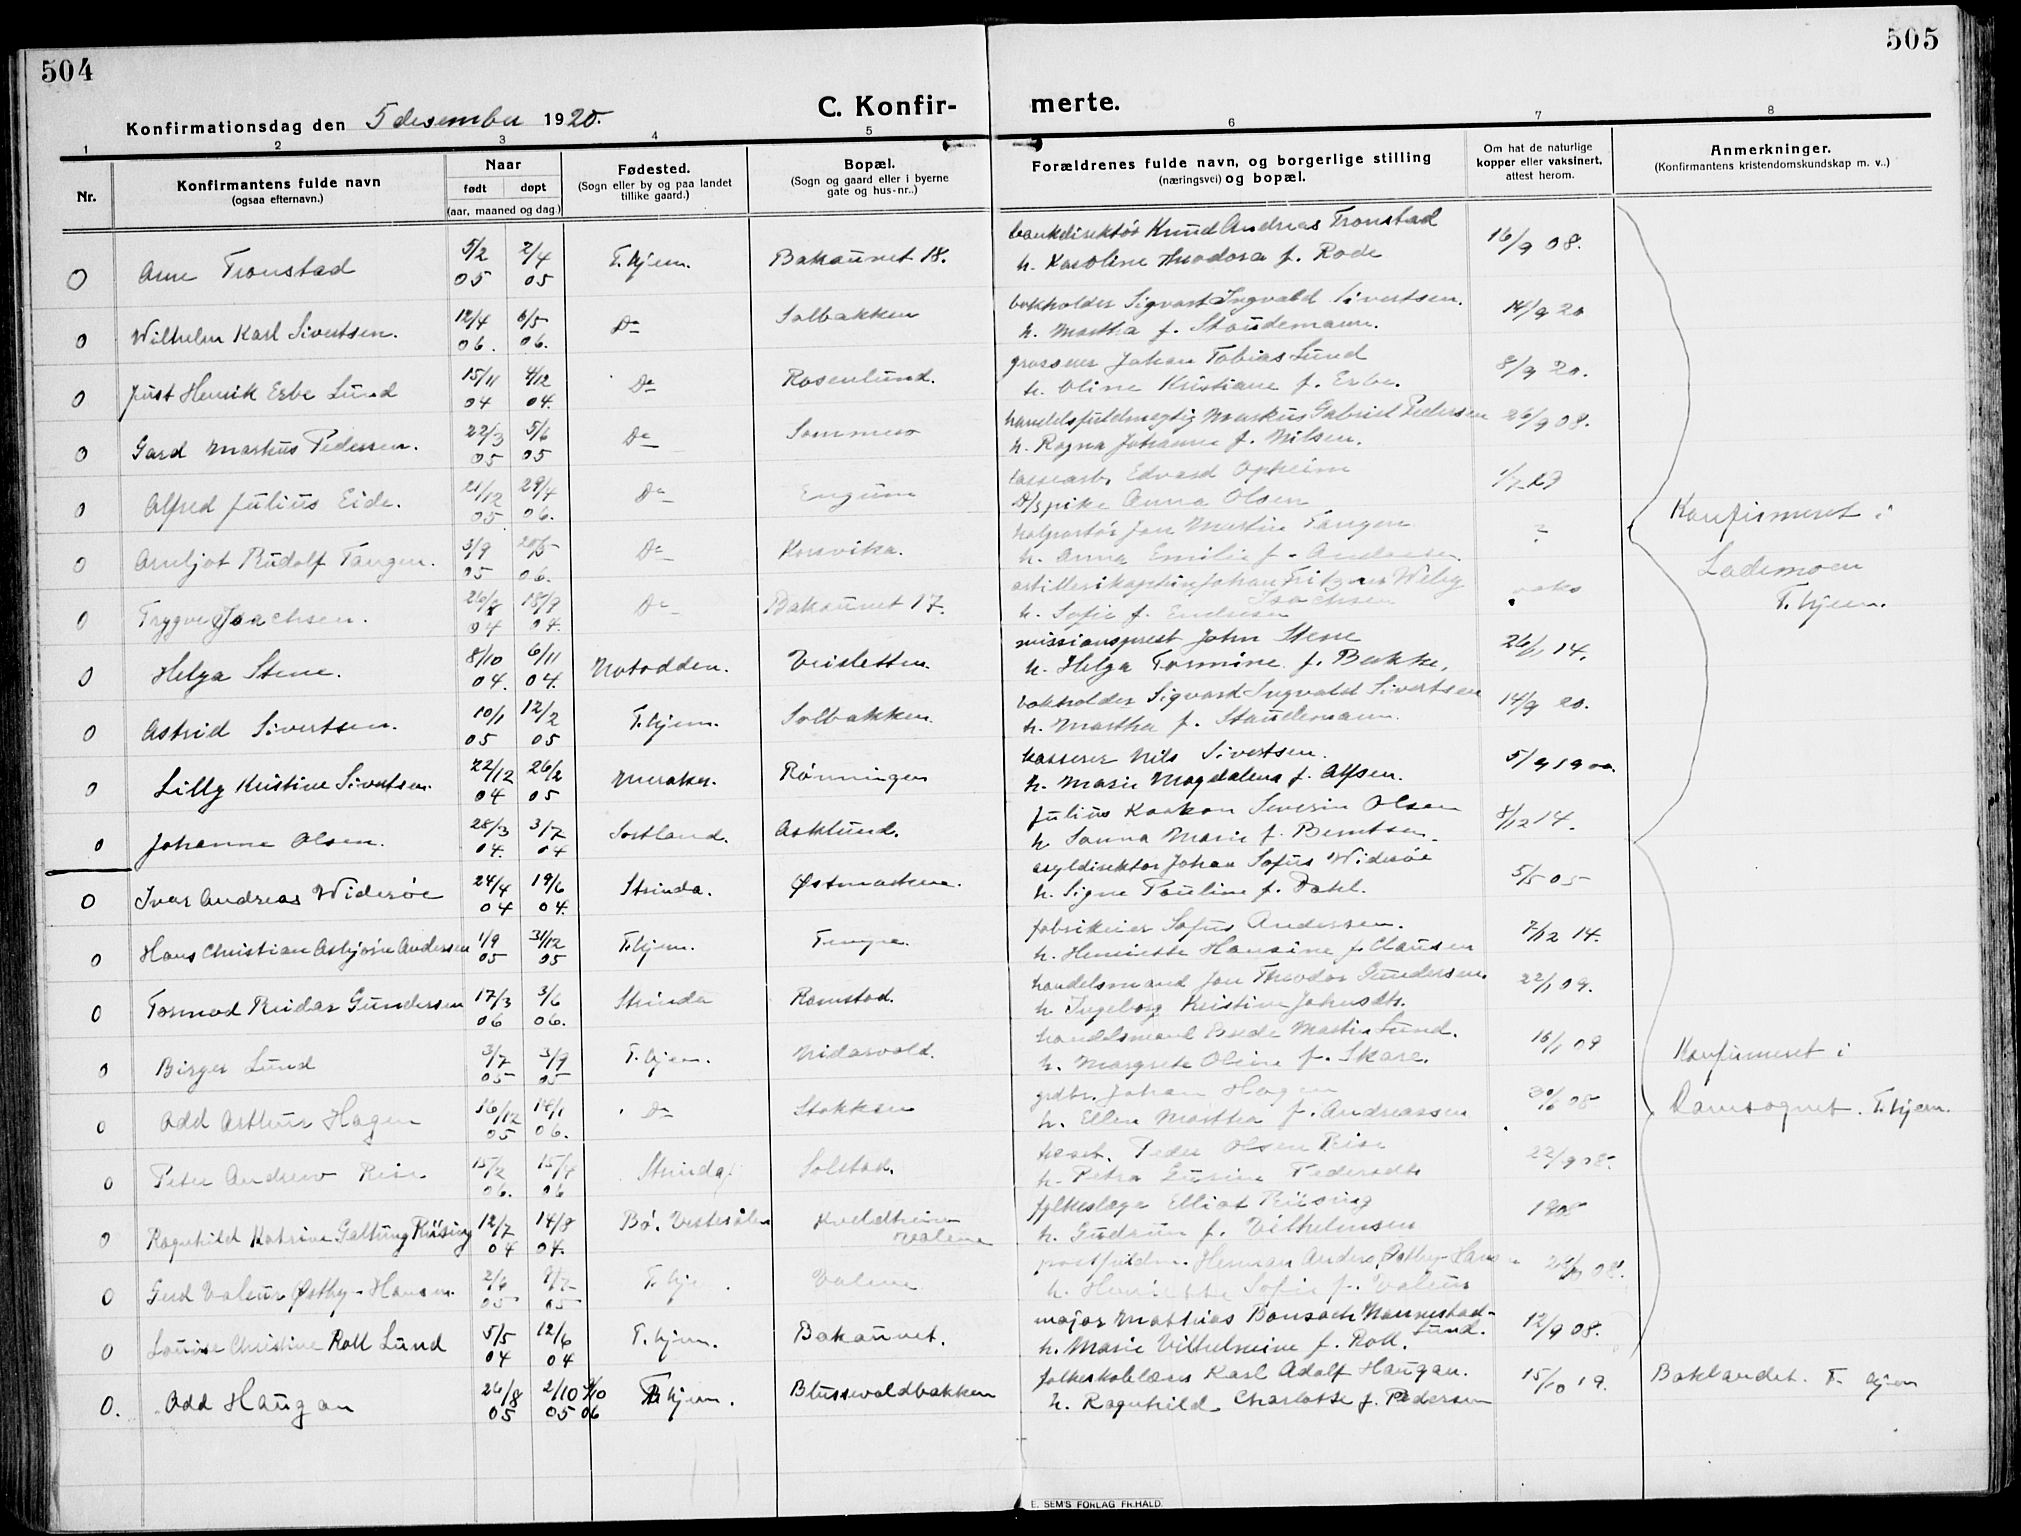 504
505
Konfirmationsdag den 5 desember 1920.
C. Konfir-
merte.
1 2 3 4 5 6 7 8
Nr.
Konfirmantens fulde navn
(ogsaa efternavn.)
Naar
født døpt
(aar, maaned og dag.)
Fødested.
(Sogn eller by og paa landet
tillike gaard.)
Bopæl.
(Sogn og gaard eller i byerne
gate og hus-nr..)
Forældrenes fulde navn, og borgerlige stilling
(næringsvei) og bopæl.
Om hat de naturlige
kopper eller vaksinert,
attest herom.
Anmerkninger.
(Konfirmantens kristendomskundskap m. v..)
bankdirektør Knud Andreas Tronstad
0 Arne Tronstad 5/2 05 2/4 05 T.hjem. Bakaunet 18. h. Karoline Theodora f. Rode 16/9 08.
bokholder Sigvart Ingvald Sivertsen.
0 Wilhelm Karl Sivertsen. 12/4 06. 6/5 06. Do Solbakken h. Martha f. Staudemann. 14/9 20
grosserer Johan Tobias Lund
0 Just Henrik Erbe Lund 15/11 04 4/12 04. Do Rosenlund. h. Oline Kristiane f. Erbe. 8/9 20.
handelsfuldmegtig Markus Gabriel Pedersen
0 Gard Markus Pedersen. 22/3 05 5/6 05 Do h. Ragna Johanne f. Nilsen. 26/9 08.
Edvard Opheim
0 Alfred Julius Eide. 21/12 05. 29/4 06. Do Engum pike Anna Olsen
Jon Martin Tangen
0 Arnljot Rudolf Tangen. 3/9 05 20/5 06. Do Korsvika. h. Anna Emilie f. ?
artillerikaptein Johan Fritzner Weby Isachsen
0 Trygve Isachsen. 04 18/9 04. Do Bakaunet 17. h. Sofie f.
Konfirmeret i
Lademoen
T.hjem.
missionsprest John Stene
0 Helga Stene. 8/10 04. 6/11 04. Notodden. Veisletten. h. Helga Tormine f. Bakke. 26/1 14.
bokholder Sigvard Ingvald Sivertsen
0 Astrid Sivertsen. 10/1 05 12/2 05 T.hjem. Solbakken. h. Martha f. Staudemann. 14/9 20.
kasserer Nils Sivertsen.
0 Lilly Kristine Sivertsen. 22/12 04 26/2 05 Meraker. Rønningen h. Marie Magdalena f. Alfsen. 5/9 1900.
Julius Haakon Severin Olsen
0 Johanne Olsen. 28/3 04. 3/7 04 Sortland. Asklund. h. Sanna Marie f. Berntsen. 8/12 14.
asyldirektør Johan Sofus Widerøe
0 Ivar Andreas Widerøe 24/4 04 19/6 04. Strinda. Østmarken. h. Signe Pauline f. Dahl. 5/5 05
fabrikeier Sofus Andersen.
0 Hans Christian Asbjørn Andersen 1/9 05 31/12 05 T.hjem. Tempe. h. Henriette Hansine f. Clausen 7/12 14.
handelsmand Jon Theodor Gundersen.
0 Tormod Reidar Gundersen 17/3 06 3/6 06. Strinda Ramstad. h. Ingeborg Kristine Johnsdtr. 22/1 09.
handelsmand Brede Martin Lund.
0 Birger Lund 3/7 05 3/9 05 T.hjem. Nidarvold. h. Margrete Oline f. Skare. 16/1 09
grdbr. Johan Hagen
0 Odd Arthur Hagen 16/12 05 14/1 06. Do Stokkan h. Ellen Martha f. Andreassen
Konfirmeret i
Domsognet. T.hjem.
Peder Olsen Rise
0 Peter Andreas Rise 15/2 06. 15/4 06 Strinda Solstad. h. Petra Gurine Pedersdtr 22/9 08.
fylkeslæge Elliot Riising
0 Ragnhild Katrine Galtung Riising 12/7 04 14/8 04. Bø. Vesterålen Kveldheim Valene h. Gudrun f. Vilhelmsen 1908
postfuldm. Herman Anders Østby-Hansen
0 Gerd Valeur Østby-Hansen 2/6 05 9/7 05 T.hje . Valene h. Henriette Sofie f. Valeur
major Matthias Bonsach Hannestad-Lund.
0 Louise Christine Roll Lund 5/5 04 12/6 04 T.hjem. Bakaunet. h. Marie Vilhelmine f. Roll. 12/9 08.
folkeskolelærer Karl Adolf Haugan.
0. Odd Haugan 26/8 05 2/10 05 06 T.hjem. Blussuvoldbakken h. Ragnhild Charlotte f. Pedersen 15/10 19. Baklandet. T. hjem
E. SEM'S FORLAG FR.HALD.